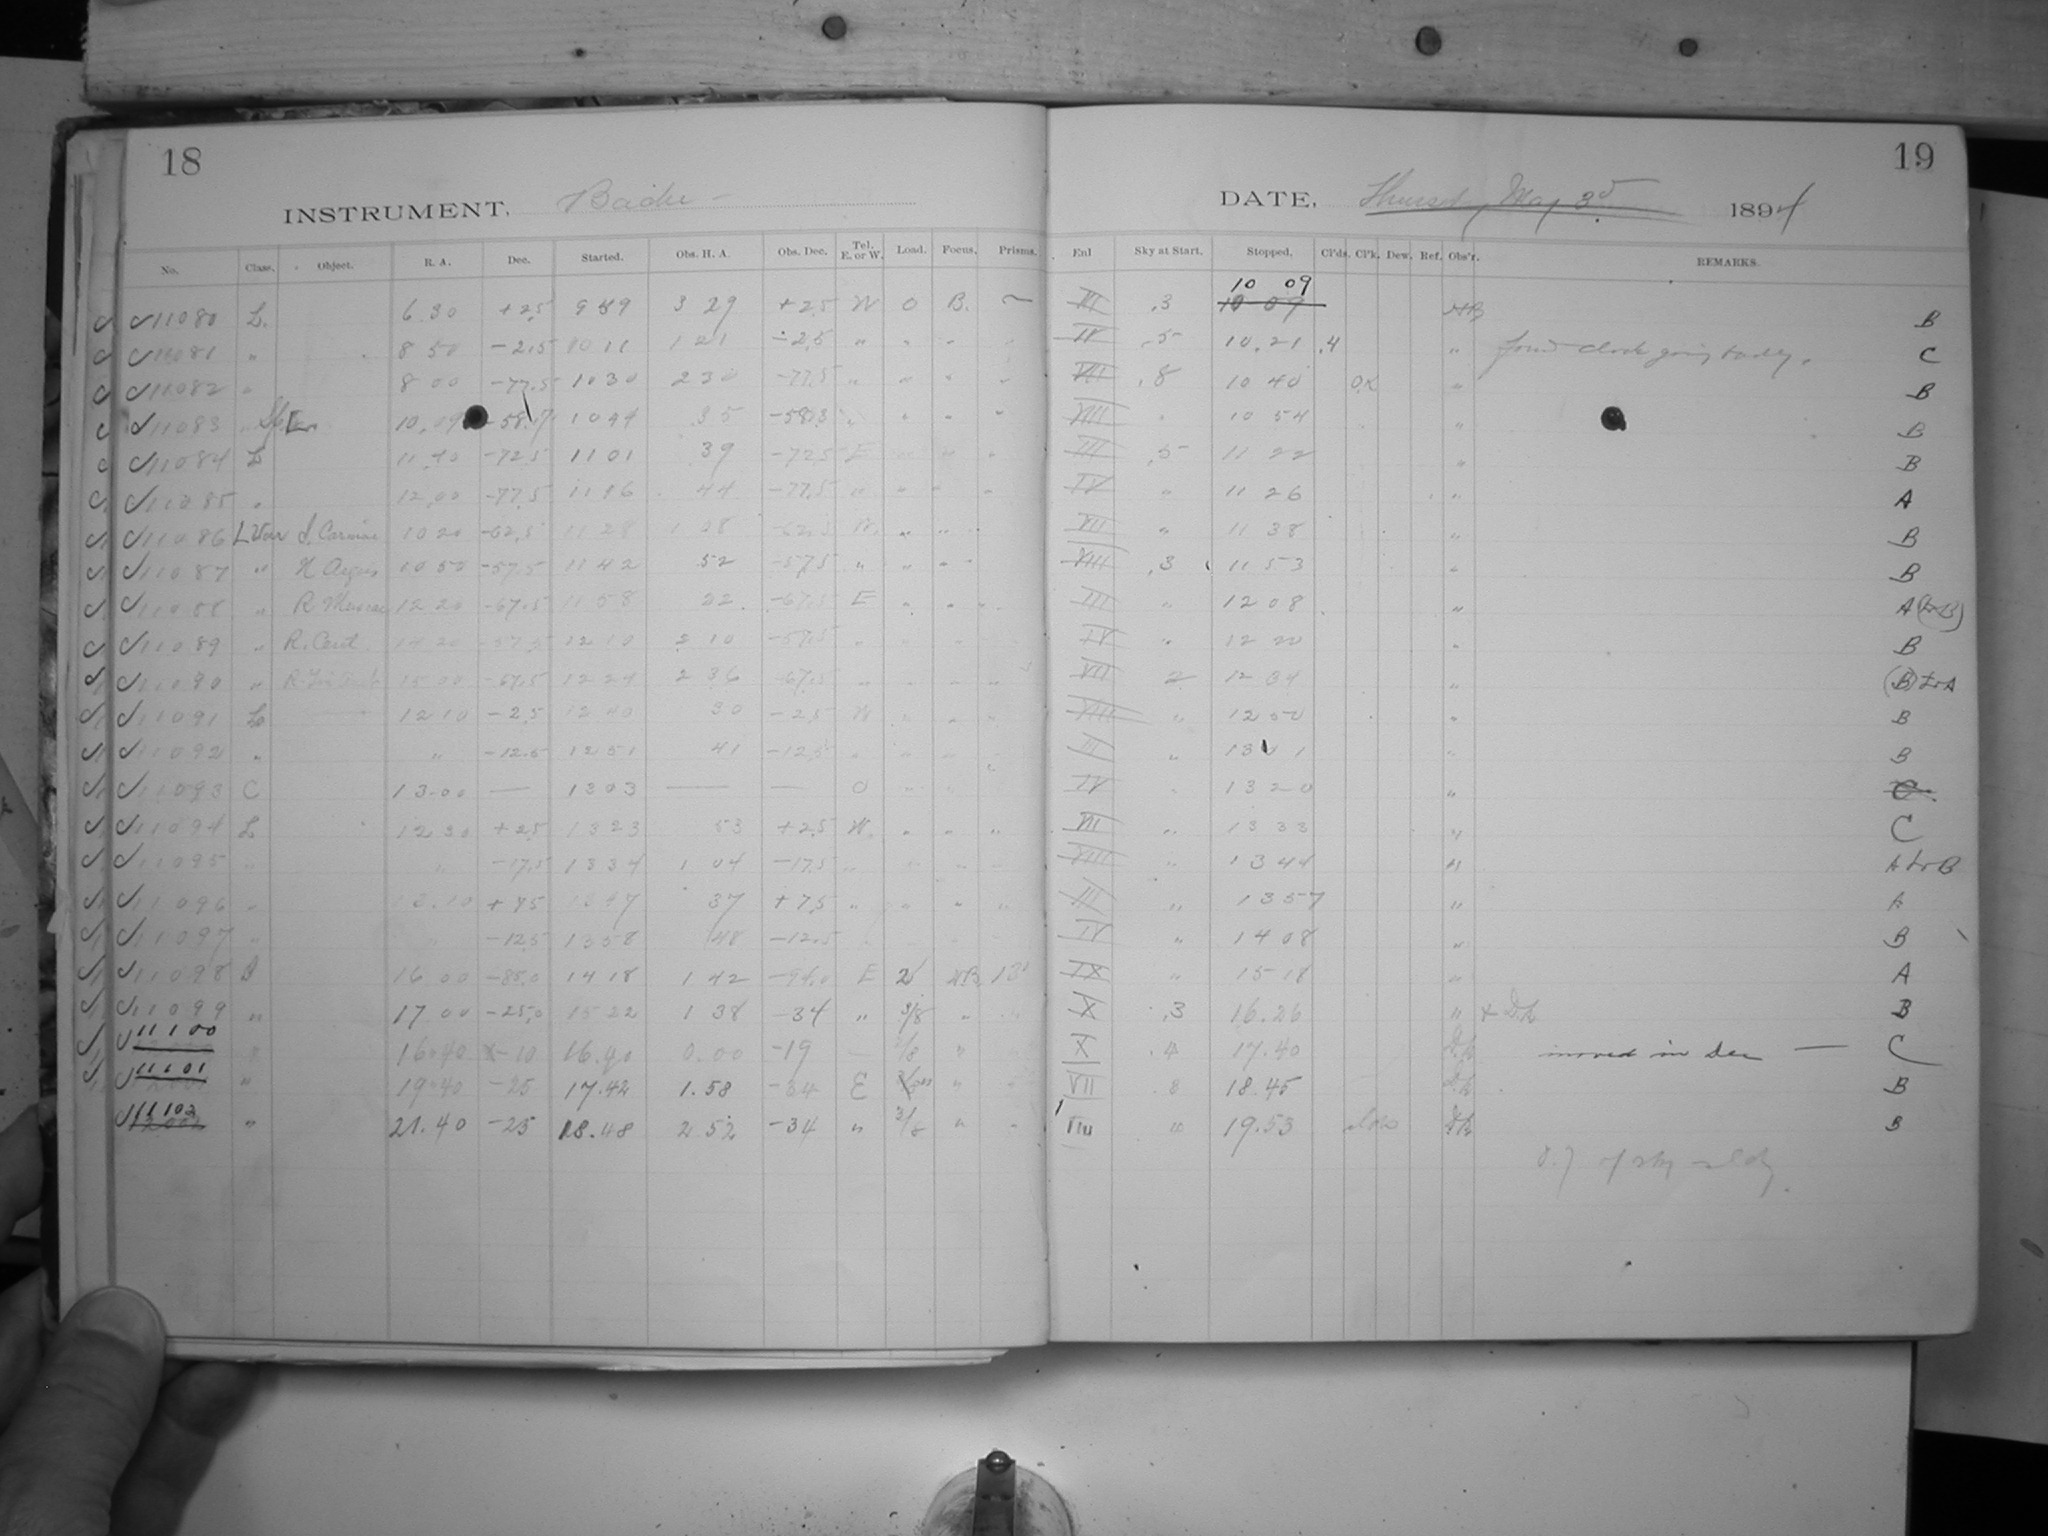 18
INSTRUMENT, Bache
No. Class. Object. R. A. Dec. Started. Obs. H. A. Obs. Dec. Tel. E. or W. Load. Focus. Prisms.
11080 L. 6 30 +25 9 59 3 29 +25 W 0 B. —
11081 " 8 50 -2.5 10 11 1 21 -2.5 " " " "
11082 " 8 00 -77.5 10 30 2 30 -77.5 " " " "
11083 10.09 -58.7 10 44 35 -58.3 " " " "
11084 L -72.5 11 01 39 -72.5 E " " "
11085 " 12.00 -77.5 11 16 44 -77.5 " " " "
11086 L Var S. Carinae 10 20 -62.5 11 28 1 08 -62.5 W. " "
11087 " N Argus 10 50 -57.5 11 42 52 -57.5 " " "
11088 " R Muscae 12 20 -67.5 11 58 22 -67.5 E " " "
11089 " R. Cent. 14 20 -57.5 12 10 2 10 -57.5 "
11090 " 15 00 -67.5 12 24 2 36 -67.5 " " " "
11091 L 12 10 -2.5 12 40 30 -2.5 W " " "
11092 " " -12.5 12 51 41 -12.5 " " "
11093 C 13.00 — 13 03 — — O " "
11094 L 12 30 +2.5 13 23 53 +2.5 W. " " "
11095 " " -17.5 13 34 1 04 -17.5 " " " "
11096 " 13.10 +7.5 13 47 37 +7.5 " " " "
11097 " " -12.5 13 58 48 -12.5
11098 16 00 -85.0 14 18 1 42 -94.0 E 2
11099 " 17 00 -25.0 15 22 1 38 -34 " 3/8 "
11100 " 16 40 -10 16.40 0.00 -19 "
11101 " 19 40 -25 17.42 1.58 -34 E "
11102 " 21.40 -25 18.48 2 52 -34 " "
19
DATE, Thursd, May 3d 1894
Enl Sky at Start. Stopped. Cl'ds. Cl'k. Dew. Ref. Obs'r. REMARKS.
10 09
III .3 10 09 B
IV .5 10.21 .4 " found clock going badly. C
VII .8 10 40 O.K. " B
VIII " 10 54 " B
III .5 11 22 " B
IV " 11 26 " A
VII " 11 38 " B
VIII .3 11 53 " B
III " 12 08 " A (to B)
IV " 12 20 " B
VII 2 12 34 " (B) to A
VIII " 12 50 " B
III " 13 01 " B
IV " 13 20 " C
VII " 13 33 " C
VIII " 13 44 " A to B
III " 13 57 " A
IV " 14 08 " B
IX " 15 18 " A
X .3 16.26 " B
X .4 17.40 moved in Dec — C
VII .8 18.45 B
VIII " 19.53 B